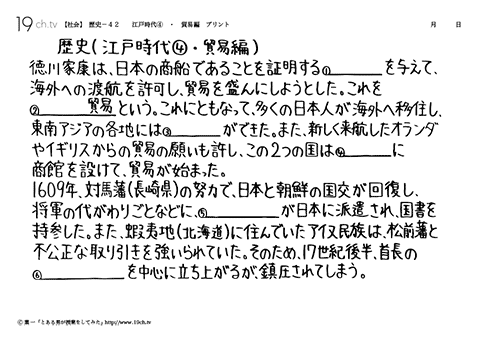 19ch.tv 【社会】 歴史-42 江戸時代④ ・ 貿易編 プリント 月 日
歴史(江戸時代④・貿易編)
徳川家康は、日本の商船であることを証明する①________を与えて、
海外への渡航を許可し、貿易を盛んにしようとした。これを
②________貿易という。これにともなって、多くの日本人が海外へ移住し、
東南アジアの各地には③________ができた。また、新しく来航したオランダ
やイギリスからの貿易の願いも許し、この2つの国は④________に
商館を設けて、貿易が始まった。
1609年、対馬藩(長崎県)の努力で、日本と朝鮮の国交が回復し、
将軍の代がわりごとなどに、⑤________が日本に派遣され、国書を
持参した。また、蝦夷地(北海道)に住んでいたアイヌ民族は、松前藩と
不公正な取り引きを強いられていた。そのため、17世紀後半、首長の
⑥________を中心に立ち上がるが、鎮圧されてしまう。
Ⓒ 葉一「とある男が授業をしてみた」http://www.19ch.tv